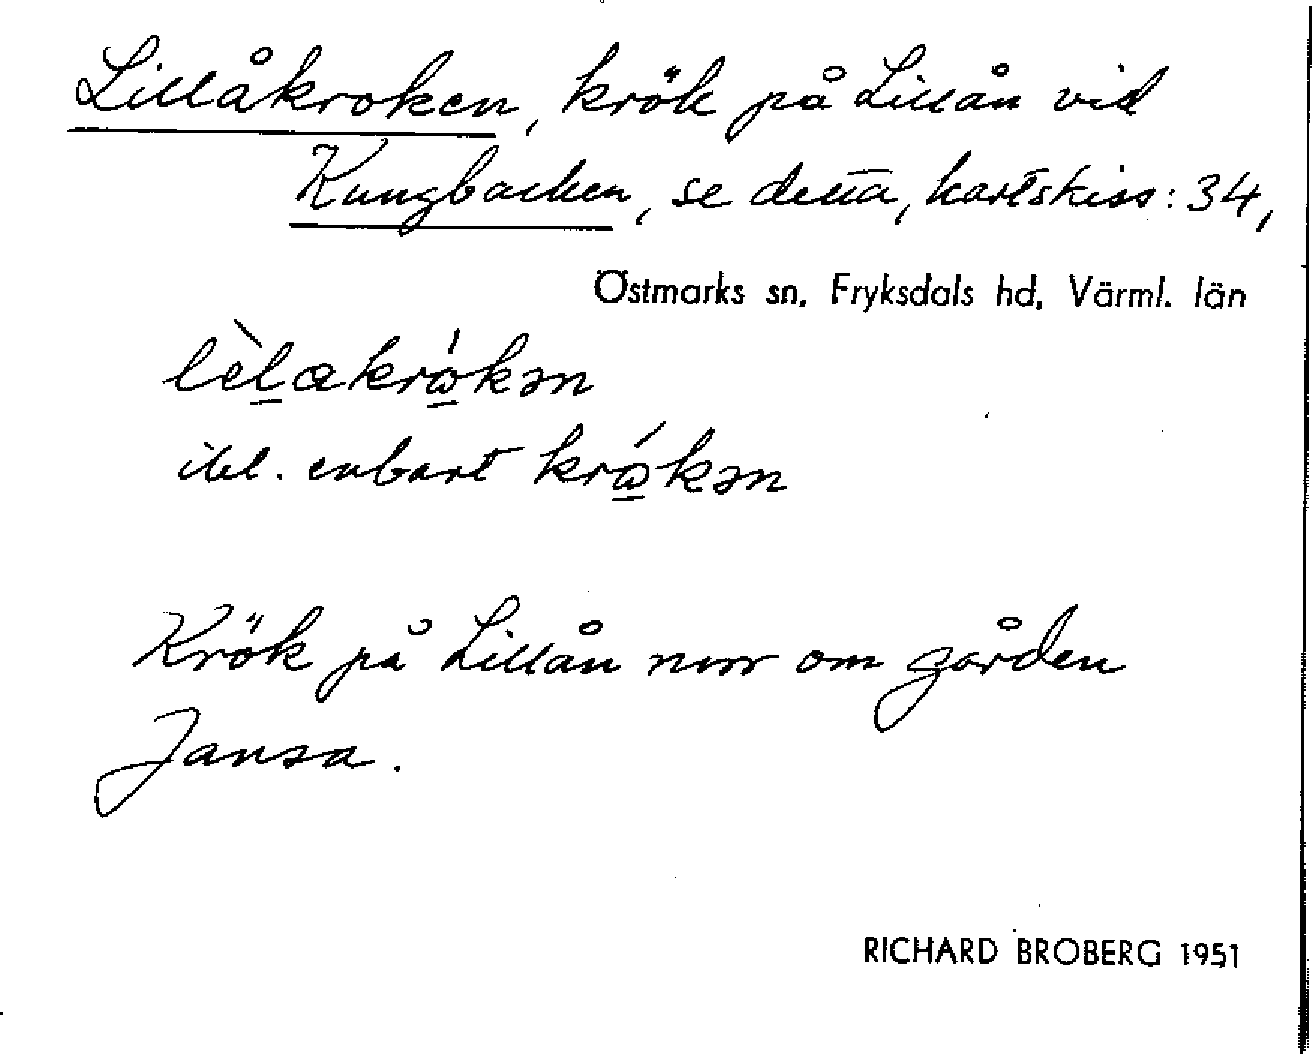 Lillåkroken, krök på Lillån vid
Kungbacken, se detta, kartskiss: 34,
Östmarks sn. Fryksdals hd. Värml. län
lèl̠akrώ̠kən
ibl. enbart krώ̠kən
Krök på Lillån norr om gården
Jansa.
RICHARD BROBERG 1951